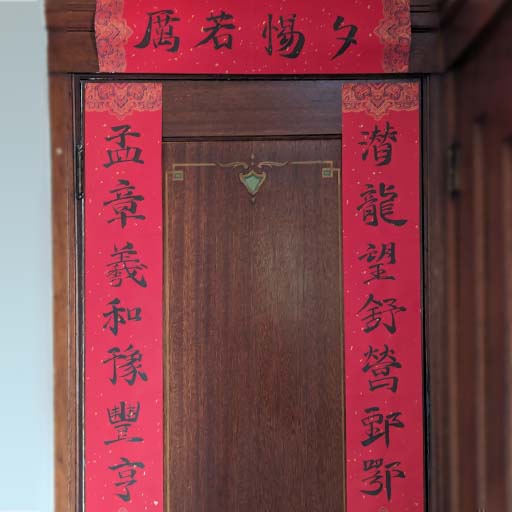 夕惕若厲
潜龍望舒營鄄鄂
孟章羲和豫豐亨